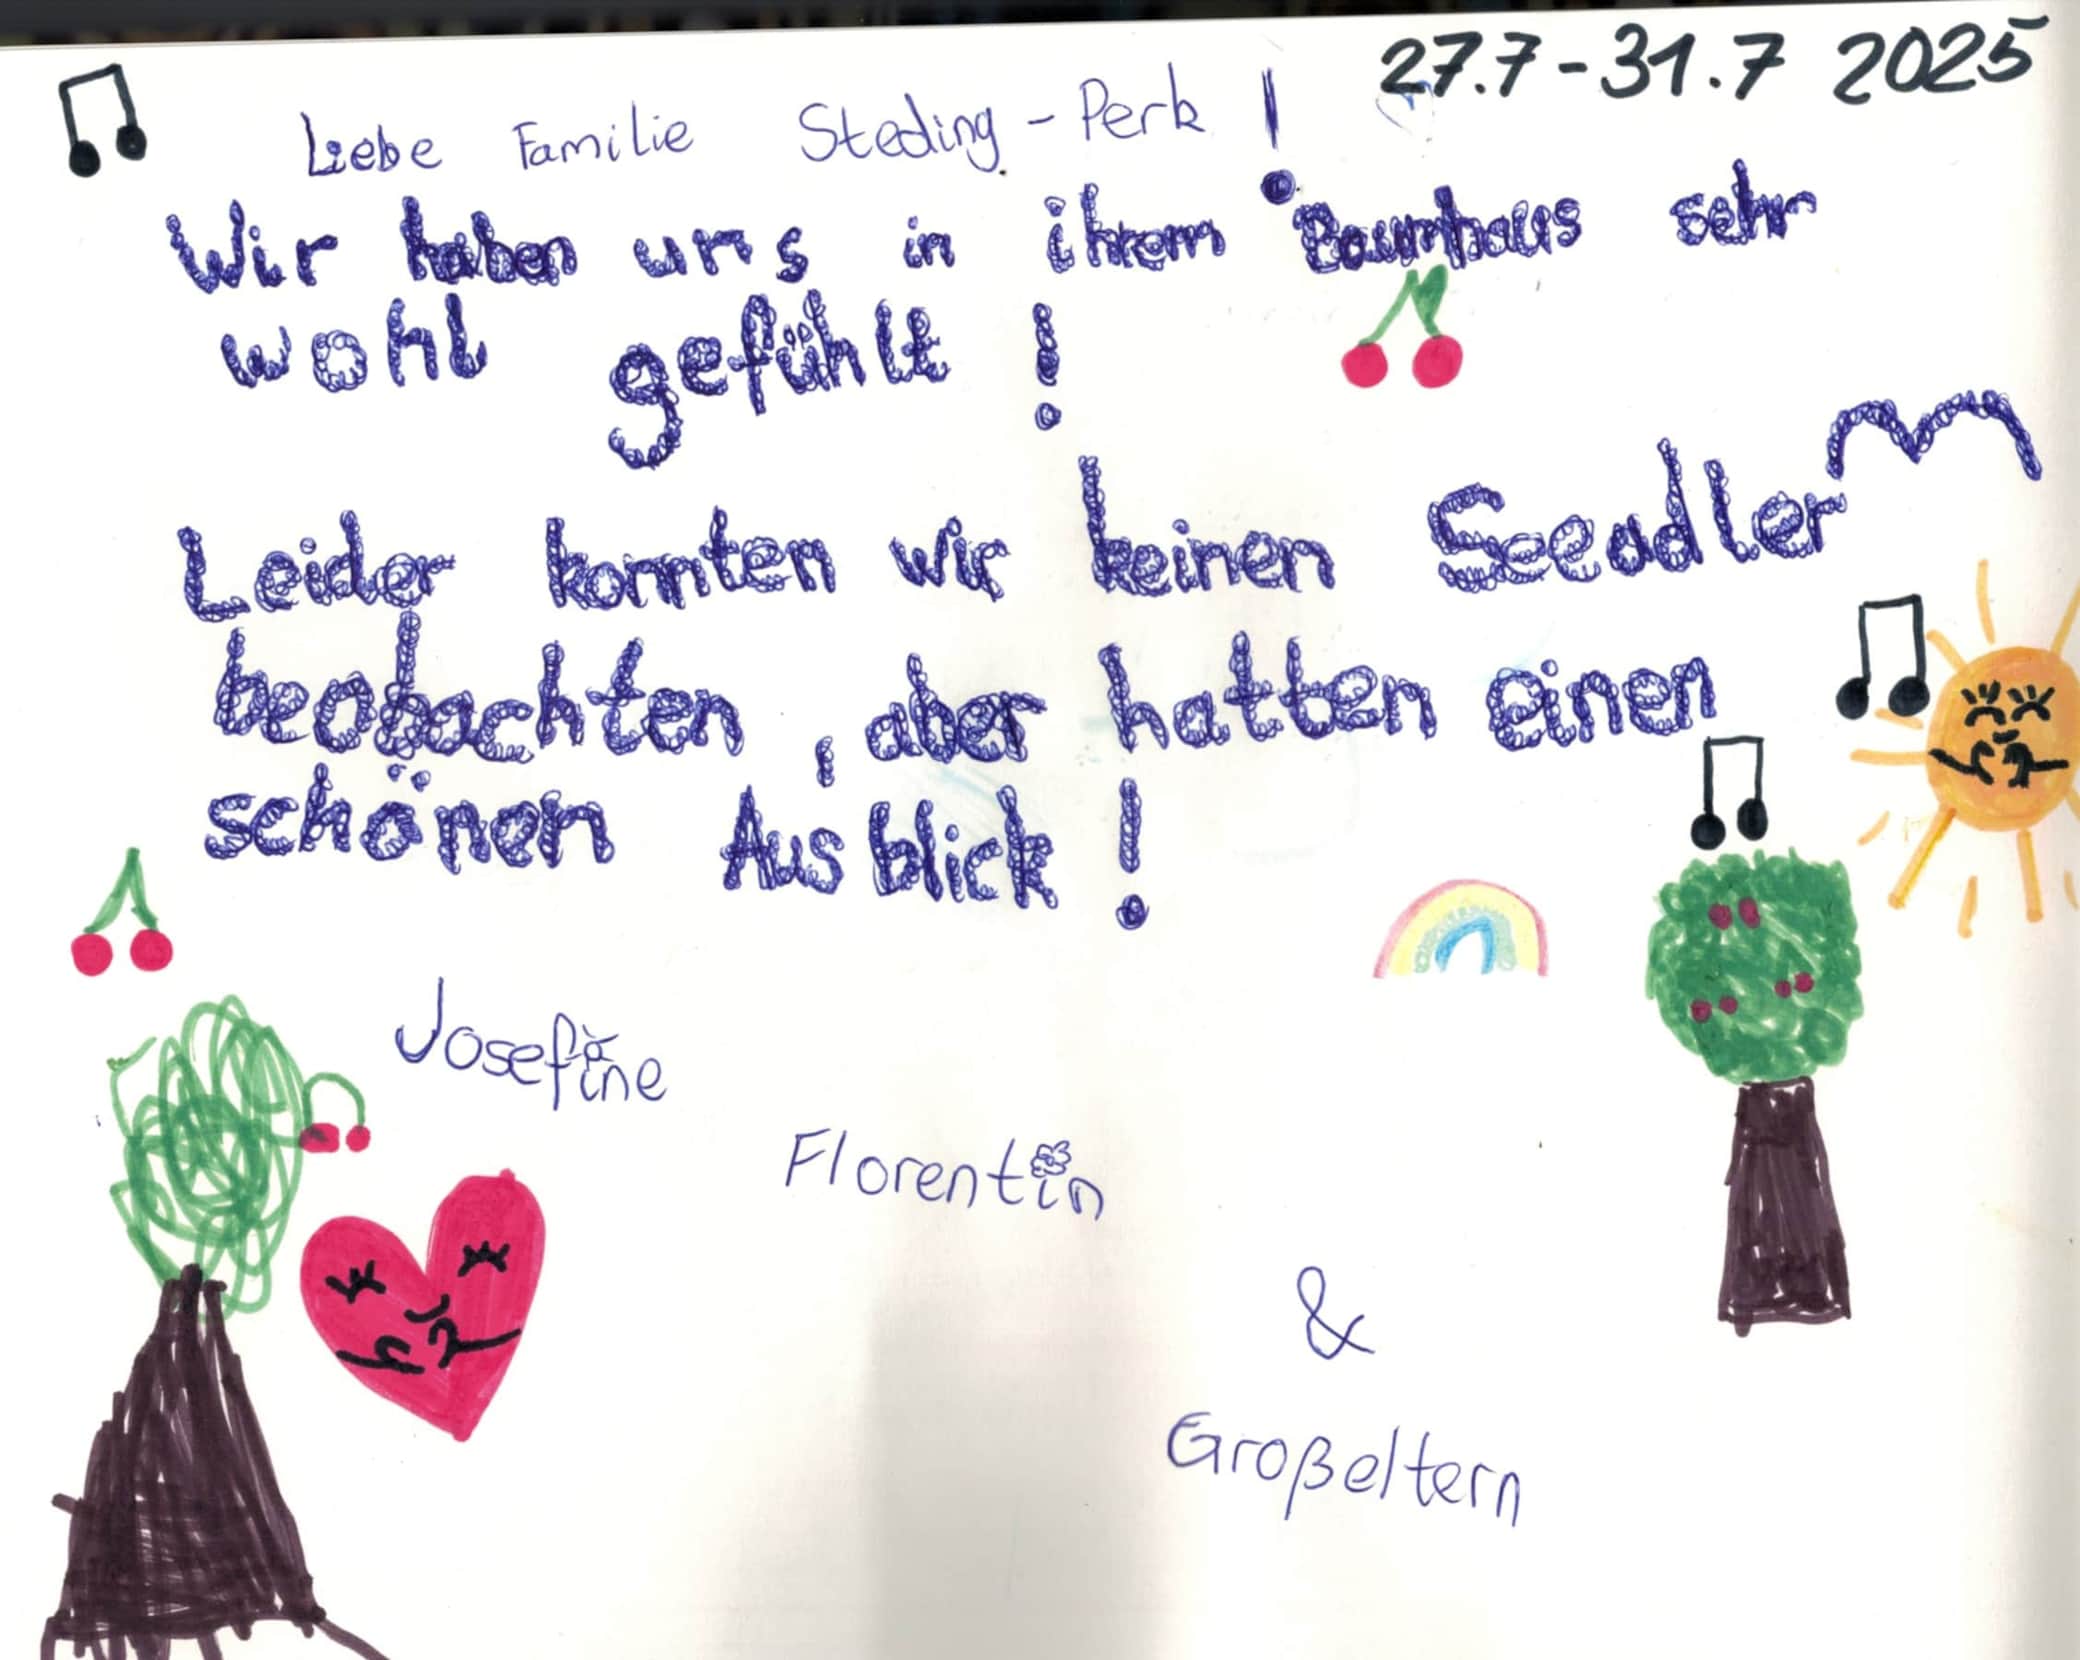 27.7-31.7 2025
Liebe Familie Steding-Perk!
Wir haben uns in ihrem Baumhaus sehr
wohl gefühlt!
Leider konnten wir keinen Seeadler
beobachten, aber hatten einen
schönen Ausblick!
Josefine
Florentin
&
Großeltern